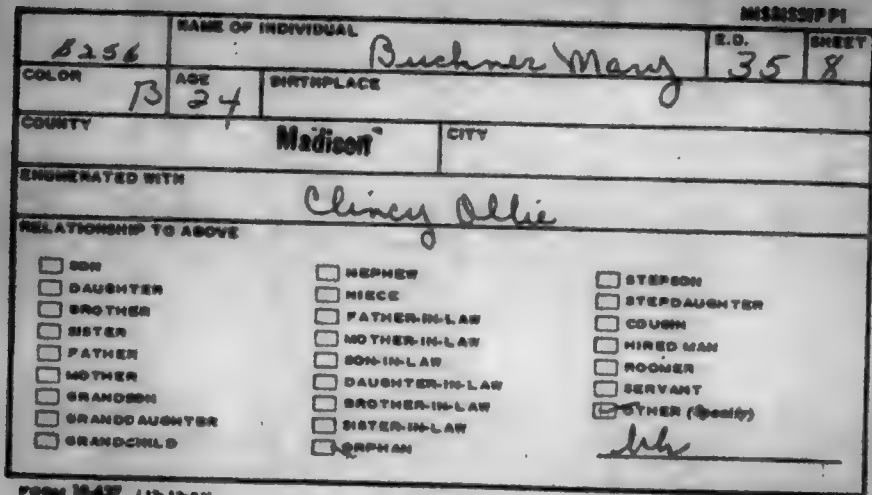 MISSISSIPPI
B256 NAME OF INDIVIDUAL Buchner Mary E.D. 35 SHEET 8
COLOR B AGE 24 BIRTHPLACE
COUNTY Madison CITY
ENUMERATED WITH
Clincy Ollie
RELATIONSHIP TO ABOVE
SON
DAUGHTER
BROTHER
SISTER
FATHER
MOTHER
GRANDSON
GRANDDAUGHTER
GRANDCHILD
NEPHEW
NIECE
FATHER-IN-LAW
MOTHER-IN-LAW
SON-IN-LAW
DAUGHTER-IN-LAW
BROTHER-IN-LAW
SISTER-IN-LAW
ORPHAN
STEPSON
STEPDAUGHTER
COUSIN
HIRED MAN
ROOMER
SERVANT
OTHER (Specify)
FORM